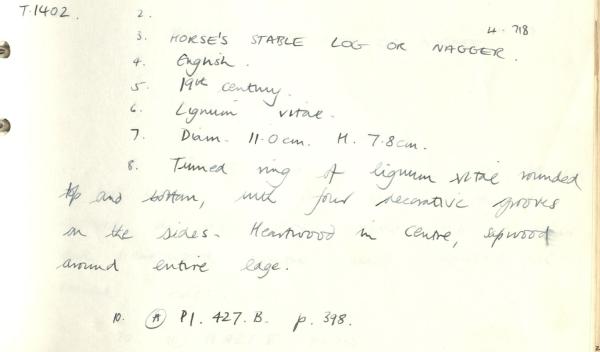 T.1402.
2.
4.718
3. HORSE'S STABLE LOG OR NAGGER.
4. English.
5. 19th century.
6. Lignum vitae.
7. Diam. 11.0cm. H. 7.8cm.
8. Turned ring of lignum vitae rounded
top and bottom, with four decorative grooves
on the sides. Heartwood in centre, sapwood
around entire edge.
10. (A) Pl. 427.B. p. 398.